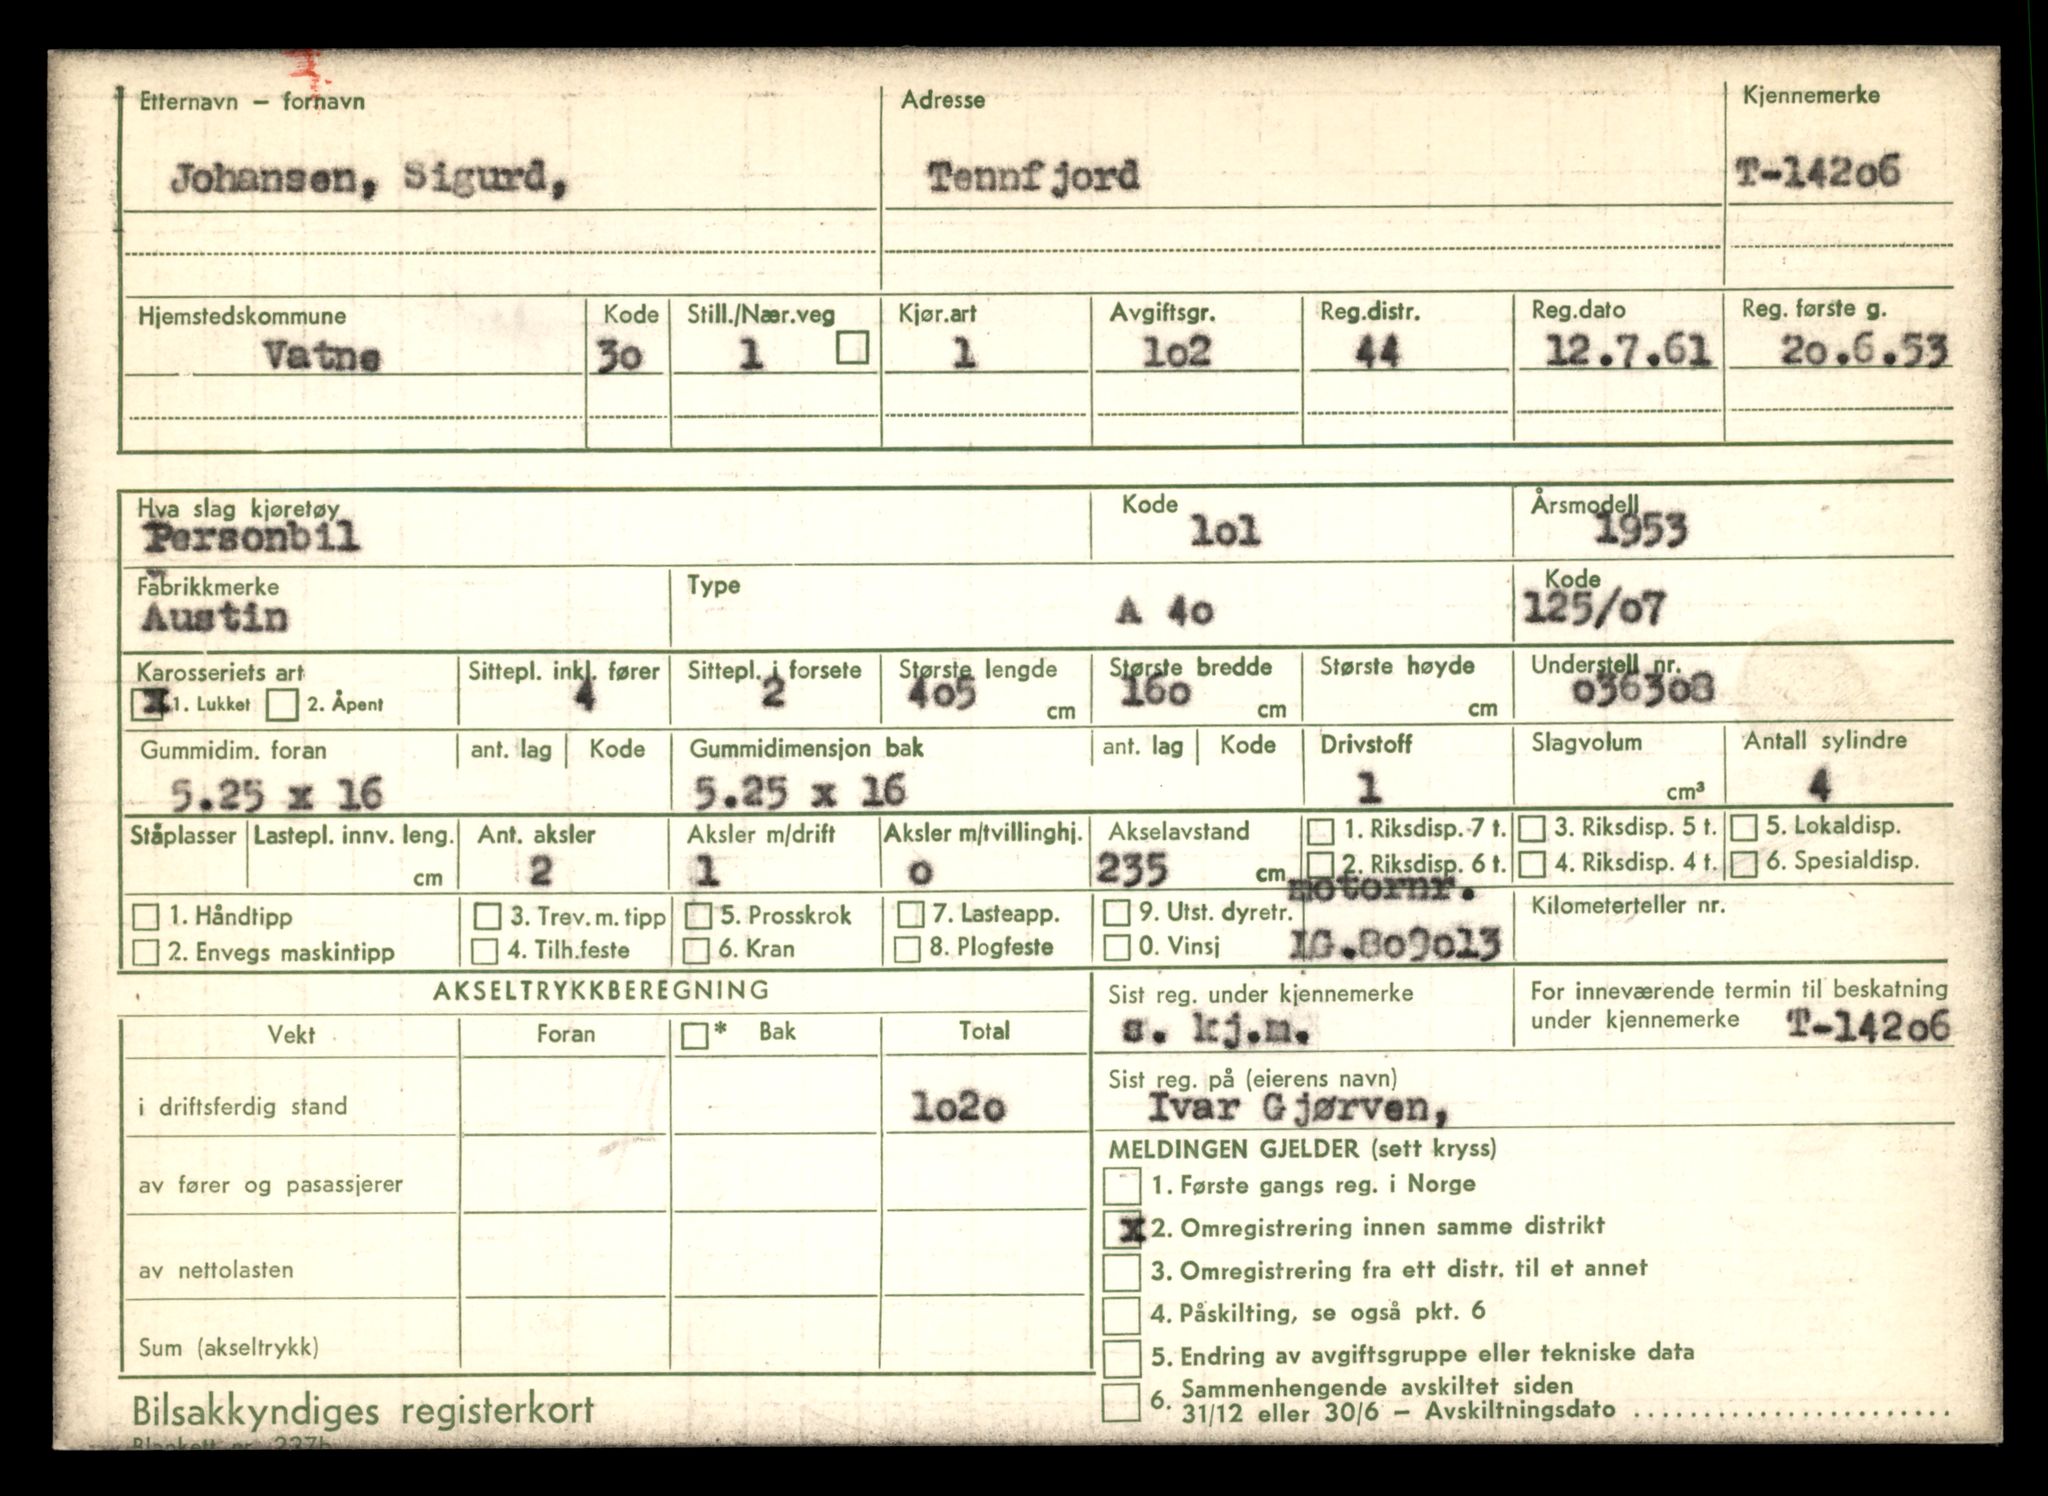 Etternavn – fornavn Adresse Kjennemerke
Johansen, Sigurd, Tennfjord T-14206
Hjemstedskommune Kode Still./Nær.veg Kjør.art Avgiftsgr. Reg.distr. Reg.dato Reg. første g.
Vatne 3o 1 1 1o2 44 12.7.61 2o.6.53
Hva slag kjøretøy Kode Årsmodell
Personbil 1o1 1953
Fabrikkmerke Type Kode
Austin A 4o 125/o7
Karosseriets art Sittepl. inkl. fører Sittepl. i forsete Største lengde Største bredde Største høyde Understell nr.
X 1. Lukket 2. Åpent 4 2 4o5 cm 16o cm cm o363o8
Gummidim. foran ant. lag Kode Gummidimensjon bak ant. lag Kode Drivstoff Slagvolum Antall sylindre
5.25 x 16 5.25 x 16 1 cm³ 4
Ståplasser Lastepl. innv. leng. Ant. aksler Aksler m/drift Aksler m/tvillinghj. Akselavstand 1. Riksdisp. 7 t. 3. Riksdisp. 5 t. 5. Lokaldisp.
cm 2 1 o 235 cm 2. Riksdisp. 6 t. 4. Riksdisp. 4 t. 6. Spesialdisp.
motornr.
1. Håndtipp 3. Trev. m. tipp 5. Prosskrok 7. Lasteapp. 9. Utst. dyretr. Kilometerteller nr.
2. Envegs maskintipp 4. Tilh.feste 6. Kran 8. Plogfeste 0. Vinsj 1G.8o9o13
AKSELTRYKKBEREGNING Sist reg. under kjennemerke For inneværende termin til beskatning
Vekt Foran * Bak Total s. kj.m. under kjennemerke T-142o6
Sist reg. på (eierens navn)
i driftsferdig stand 1o2o Ivar Gjørven,
MELDINGEN GJELDER (sett kryss)
av fører og pasassjerer 1. Første gangs reg. i Norge
x 2. Omregistrering innen samme distrikt
av nettolasten 3. Omregistrering fra ett distr. til et annet
4. Påskilting, se også pkt. 6
Sum (akseltrykk) 5. Endring av avgiftsgruppe eller tekniske data
6. Sammenhengende avskiltet siden
Bilsakkyndiges registerkort 31/12 eller 30/6 – Avskiltningsdato ........................
Blankett nr. 237b